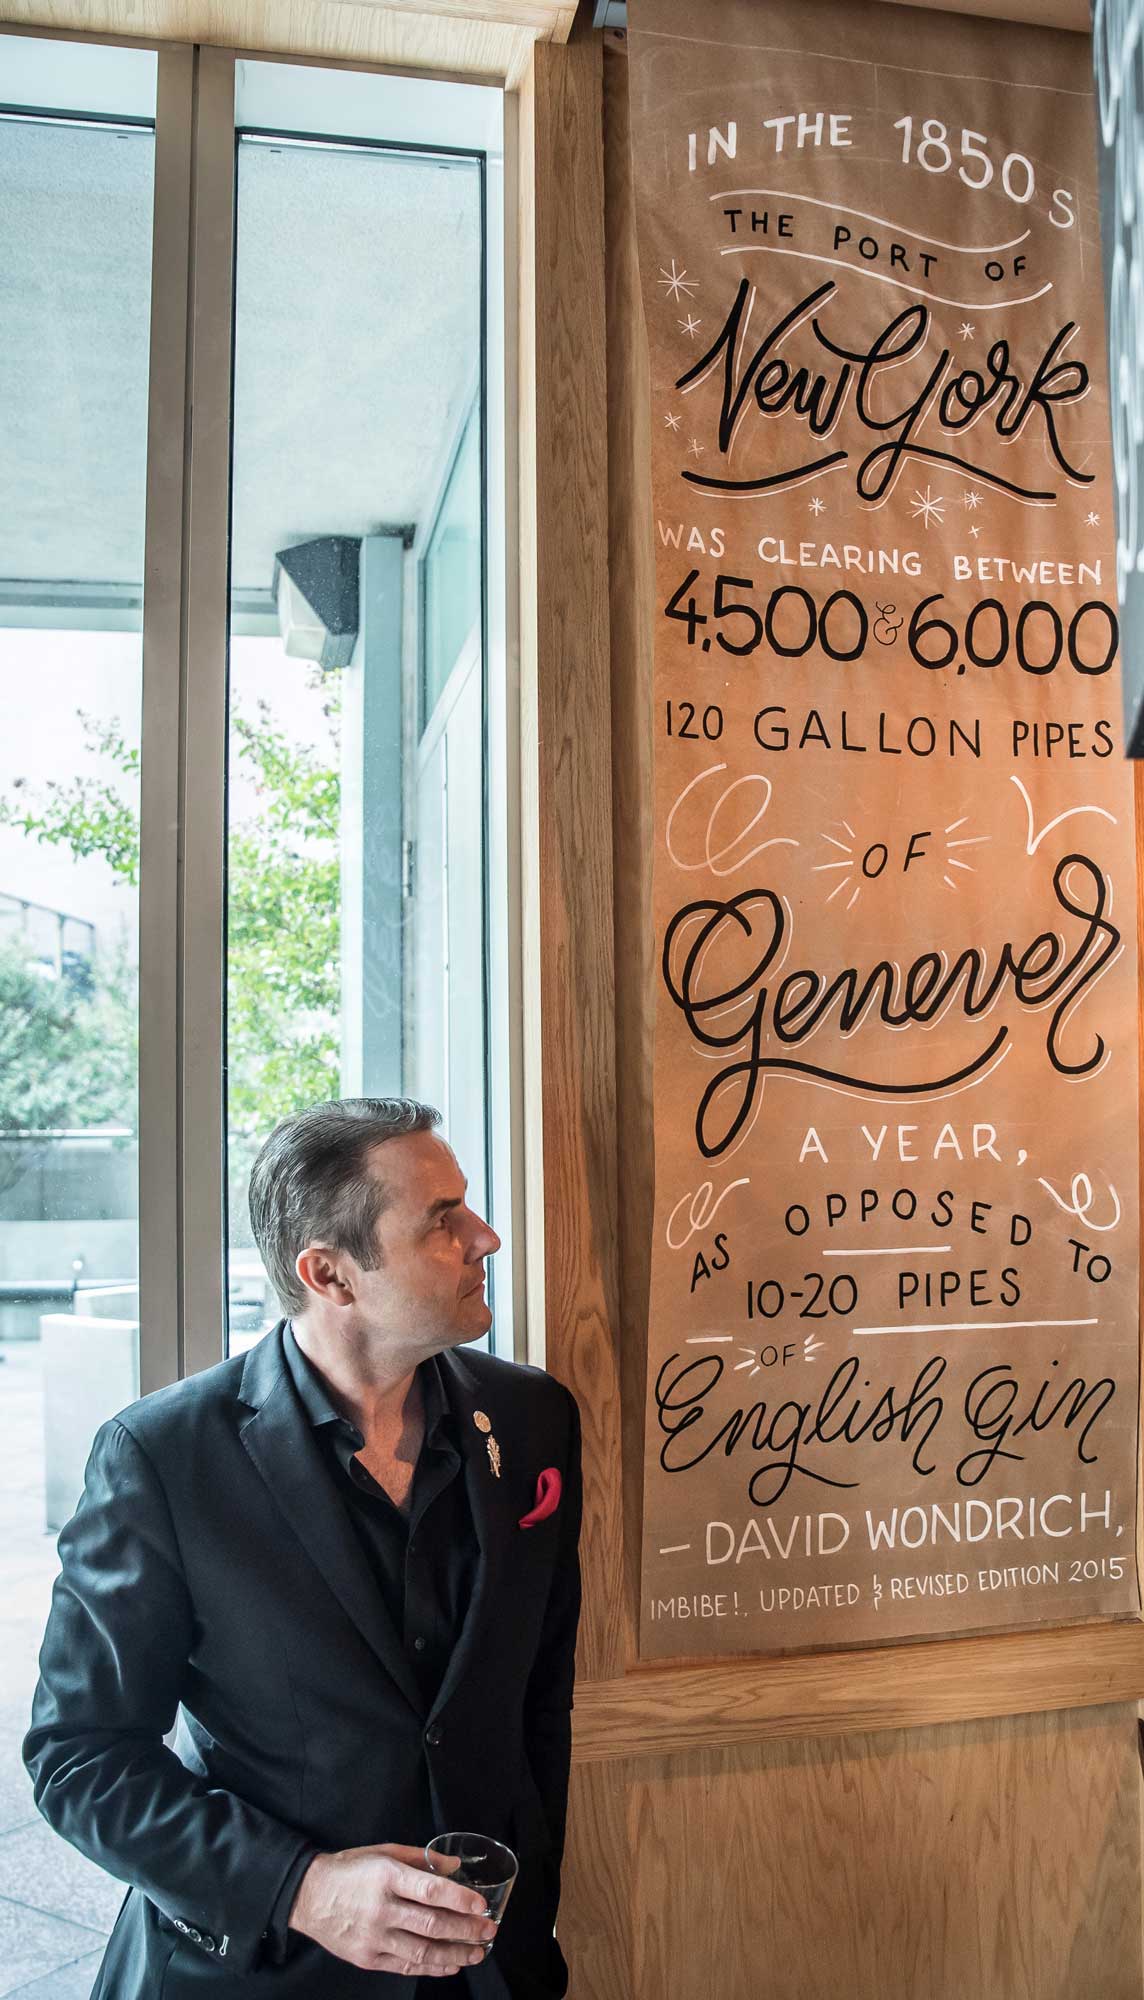 IN THE 1850s
THE PORT OF
New York
WAS CLEARING BETWEEN
4,500 & 6,000
120 GALLON PIPES
OF
Genever
A YEAR,
AS OPPOSED TO
10-20 PIPES
OF
English Gin
– DAVID WONDRICH,
IMBIBE!, UPDATED & REVISED EDITION 2015